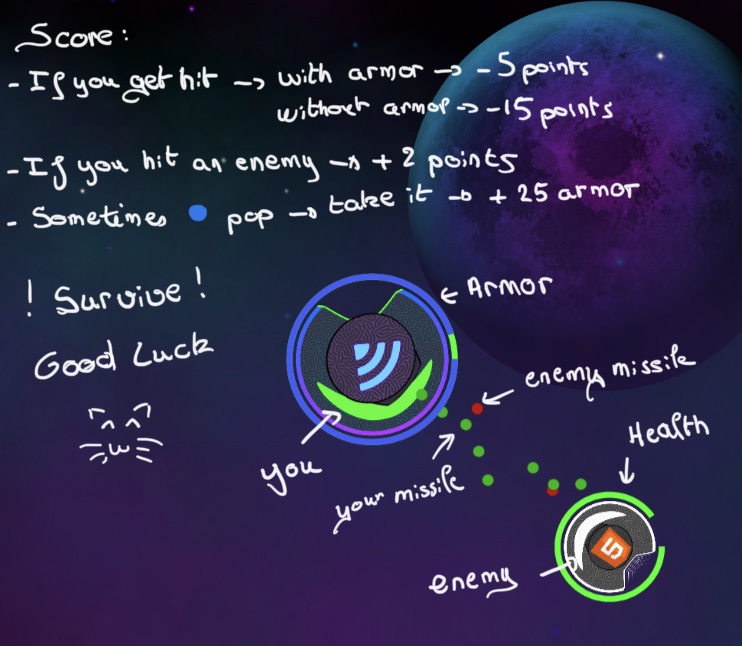 Score:
- If you get hit -> with armor -> - 5 points
without armor -> -15 points
- If you hit an enemy -> + 2 points
- Sometimes pop -> take it -> + 25 armor
! Survive !
Good Luck
Armor
enemy missile
Health
you
your missile
5
enemy